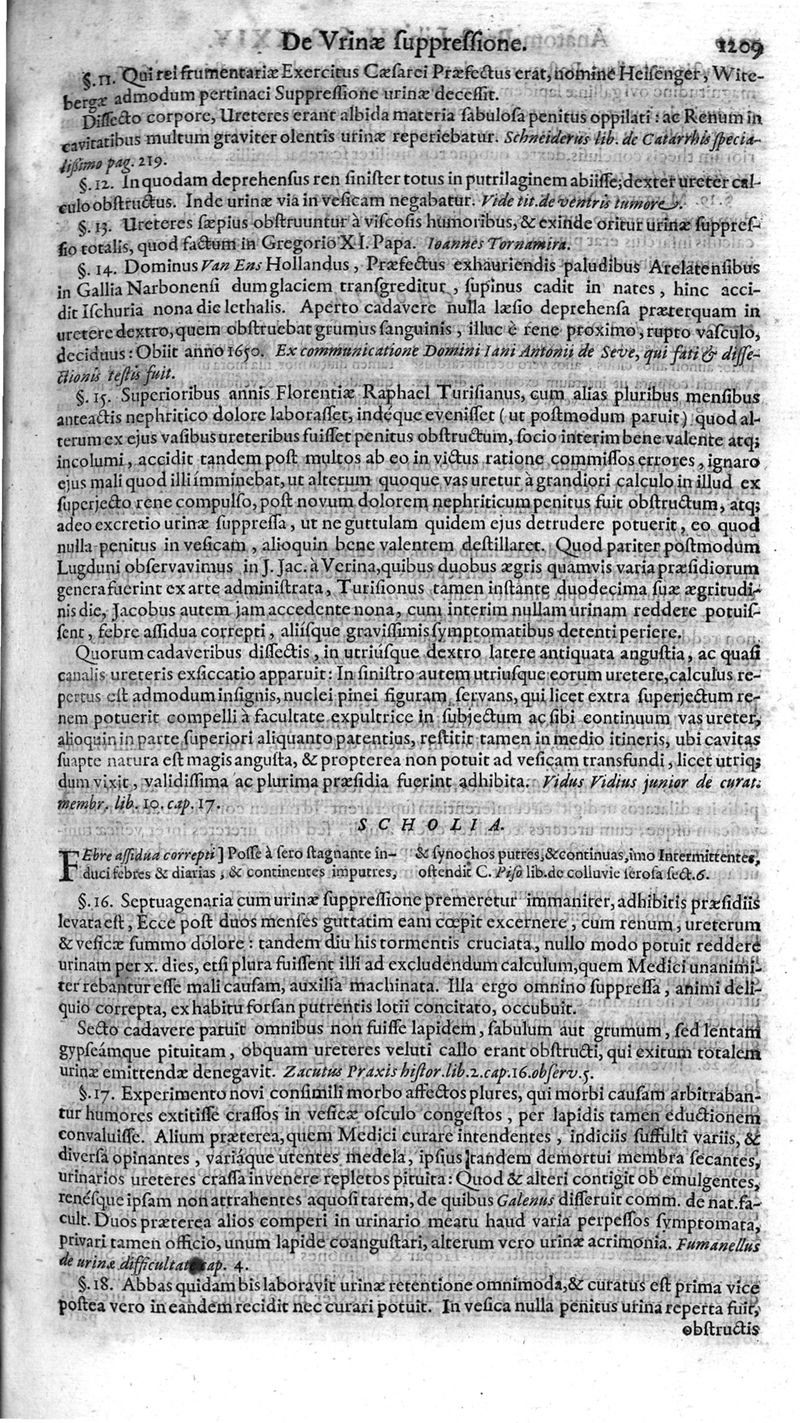 De Vrinæ ſuppreſſione.
1209
§. 11. Qui rei frumentariæ Exercitus Cæſarei Præfectus erat, nomine Heiſenger, Wite-
bergæ admodum pertinaci Suppreſſione urinæ deceſſit.
Diſſecto corpore, Ureteres erant albida materia ſabuloſa penitus oppilati: ac Renum in
cavitatibus multum graviter olentis urinæ reperiebatur. Schneiderus lib. de Catarrhis ſpecia-
liſſimo pag. 219.
§. 12. In quodam deprehenſus ren ſiniſter totus in putrilaginem abiiſſe; dexter ureter cal-
culo obſtructus. Inde urinæ via in veſicam negabatur. Vide tit. de ventris tumore.
§. 13. Ureteres ſæpius obſtruuntur à viſcoſis humoribus, & exinde oritur urinæ ſuppreſ-
ſio totalis, quod factum in Gregorio XI. Papa. Ioannes Tornamira.
§. 14. Dominus Van Ens Hollandus, Præfectus exhauriendis paludibus Arelatenſibus
in Gallia Narbonenſi dum glaciem tranſgreditur, ſupinus cadit in nates, hinc acci-
dit Iſchuria nona die lethalis. Aperto cadavere nulla læſio deprehenſa præterquam in
uretere dextro, quem obſtruebat grumus ſanguinis, illuc è rene proximo, rupto vaſculo,
deciduus: Obiit anno 1650. Ex communicatione Domini Iani Antonii de Seve, qui fati & diſſe-
ctionis teſtis fuit.
§. 15. Superioribus annis Florentiæ Raphael Turiſianus, cum alias pluribus menſibus
anteactis nephritico dolore laboraſſet, indéque eveniſſet (ut poſtmodum paruit) quod al-
terum ex ejus vaſibus ureteribus fuiſſet penitus obſtructum, ſocio interim bene valente atq;
incolumi, accidit tandem poſt multos ab eo in victus ratione commiſſos errores, ignaro
ejus mali quod illi imminebat, ut alterum quoque vas uretur à grandiori calculo in illud ex
ſuperjecto rene compulſo, poſt novum dolorem nephriticum penitus fuit obſtructum, atq;
adeo excretio urinæ ſuppreſſa, ut ne guttulam quidem ejus detrudere potuerit, eo quod
nulla penitus in veſicam, alioquin bene valentem deſtillaret. Quod pariter poſtmodum
Lugduni obſervavimus in J. Jac. à Verina, quibus duobus ægris quamvis varia præſidiorum
genera fuerint ex arte adminiſtrata, Turiſionus tamen inſtante duodecima ſuæ ægritudi-
nis die, Jacobus autem jam accedente nona, cum interim nullam urinam reddere potuiſ-
ſent, febre aſſidua correpti, aliiſque graviſſimis ſymptomatibus detenti periere.
Quorum cadaveribus diſſectis, in utriúſque dextro latere antiquata anguſtia, ac quaſi
canalis ureteris exſiccatio apparuit: In ſiniſtro autem utriuſque eorum uretere, calculus re-
pertus eſt admodum inſignis, nuclei pinei figuram ſervans, qui licet extra ſuperjectum re-
nem potuerit compelli à facultate expultrice in ſubjectum ac ſibi continuum vas ureter,
alioquin in parte ſuperiori aliquanto patentius, reſtitit tamen in medio itineris, ubi cavitas
ſuapte natura eſt magis anguſta, & propterea non potuit ad veſicam transfundi, licet utriq;
dum vixit, validiſſima ac plurima præſidia fuerint adhibita. Vidus Vidius junior de curat.
membr. lib. 10. cap. 17.
SCHOLIA.
FEbre aſſidua correpti] Poſſe à ſero ſtagnante in-
duci febres & diarias, & continentes imputres,
& ſynochos putres, & continuas, imo Intermittentes,
oſtendit C. Piſo lib. de colluvie ſeroſa ſect. 6.
§. 16. Septuagenaria cum urinæ ſuppreſſione premeretur immaniter, adhibitis præſidiis
levata eſt, Ecce poſt duos menſes guttatim eam cœpit excernere, cum renum, ureterum
& veſicæ ſummo dolore: tandem diu his tormentis cruciata, nullo modo potuit reddere
urinam per x. dies, etſi plura fuiſſent illi ad excludendum calculum, quem Medici unanimi-
ter rebantur eſſe mali cauſam, auxilia machinata. Illa ergo omnino ſuppreſſa, animi deli-
quio correpta, ex habitu forſan putrentis lotii concitato, occubuit.
Secto cadavere patuit omnibus non fuiſſe lapidem, ſabulum aut grumum, ſed lentam
gypſeámque pituitam, ob quam ureteres veluti callo erant obſtructi, qui exitum totalem
urinæ emittendæ denegavit. Zacutus Praxis hiſtor. lib. 2. cap. 16. obſerv. 5.
§. 17. Experimento novi conſimili morbo affectos plures, qui morbi cauſam arbitraban-
tur humores extitiſſe craſſos in veſicæ oſculo congeſtos, per lapidis tamen eductionem
convaluiſſe. Alium præterea, quem Medici curare intendentes, indiciis ſuffulti variis, &
diverſa opinantes, variáque utentes medela, ipſius tandem demortui membra ſecantes,
urinarios ureteres craſſa invenere repletos pituita: Quod & alteri contigit ob emulgentes,
renéſque ipſam non attrahentes aquoſitatem, de quibus Galenus diſſeruit comm. de nat. fa-
cult. Duos præterea alios comperi in urinario meatu haud varia perpeſſos ſymptomata,
privari tamen officio, unum lapide coanguſtari, alterum vero urinæ acrimonia. Fumanellus
de urinæ difficultat cap. 4.
§. 18. Abbas quidam bis laboravit urinæ retentione omnimoda, & curatus eſt prima vice
poſtea vero in eandem recidit nec curari potuit. In veſica nulla penitus urina reperta fuit,
obſtructis